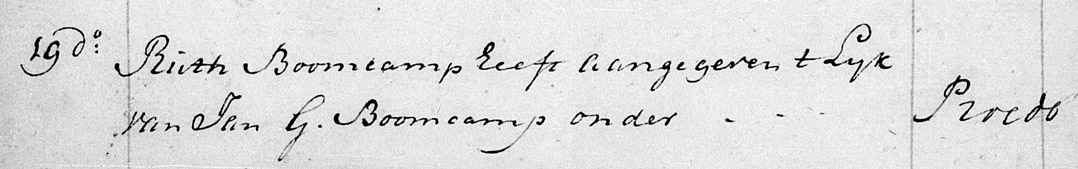 19 do: Ruth Boomcamp heeft aangegeven t Lyk
van Jan G. Boomcamp onder - - - Pro do